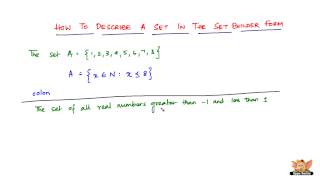 HOW TO DESCRIBE A SET IN THE SET BUILDER FORM
The set A = {1, 2, 3, 4, 5, 6, 7, 8}
A = {x ∈ N : x ≤ 8}
colon
The set of all real numbers greater than -1 and less than 1